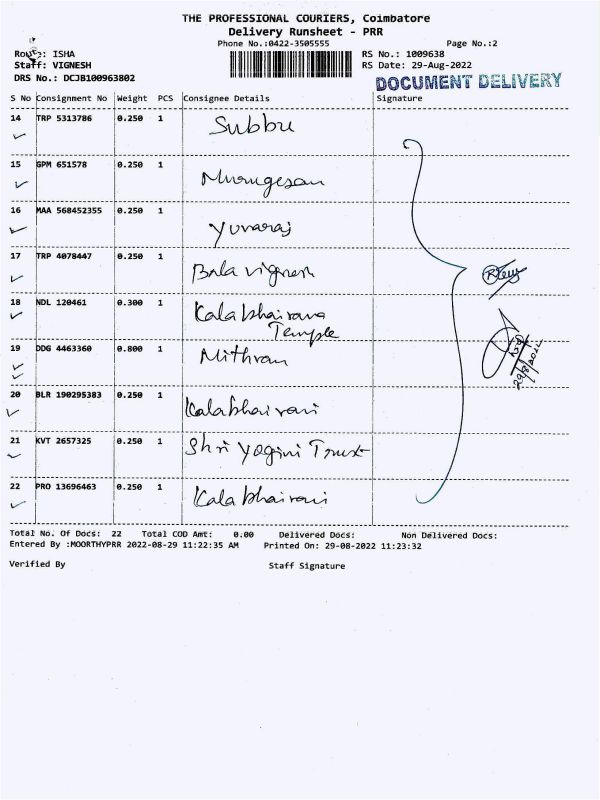 THE PROFESSIONAL COURIERS, Coimbatore
Delivery Runsheet - PRR
Phone No.:0422-3505555 Page No.:2
Route: ISHA RS No.: 1009638
Staff: VIGNESH RS Date: 29-Aug-2022
DRS No.: DCJB100963802 DOCUMENT DELIVERY
S No Consignment No Weight PCS Consignee Details Signature
14 TRP 5313786 0.250 1 Subbu
15 GPM 651578 0.250 1 Murugesan
16 MAA 568452355 0.250 1 Yuvaraj
17 TRP 4078447 0.250 1 Bala vignesh
18 NDL 120461 0.300 1 Kala bhairava
Temple
19 DDG 4463360 0.800 1 Mithran
20 BLR 190295383 0.250 1 Kalabhairavi
21 KVT 2657325 0.250 1 Shri Yogini Trust
22 PRO 13696463 0.250 1 Kala bhairavi
29/8/2022
Total No. Of Docs: 22 Total COD Amt: 0.00 Delivered Docs: Non Delivered Docs:
Entered By :MOORTHYPRR 2022-08-29 11:22:35 AM Printed On: 29-08-2022 11:23:32
Verified By Staff Signature